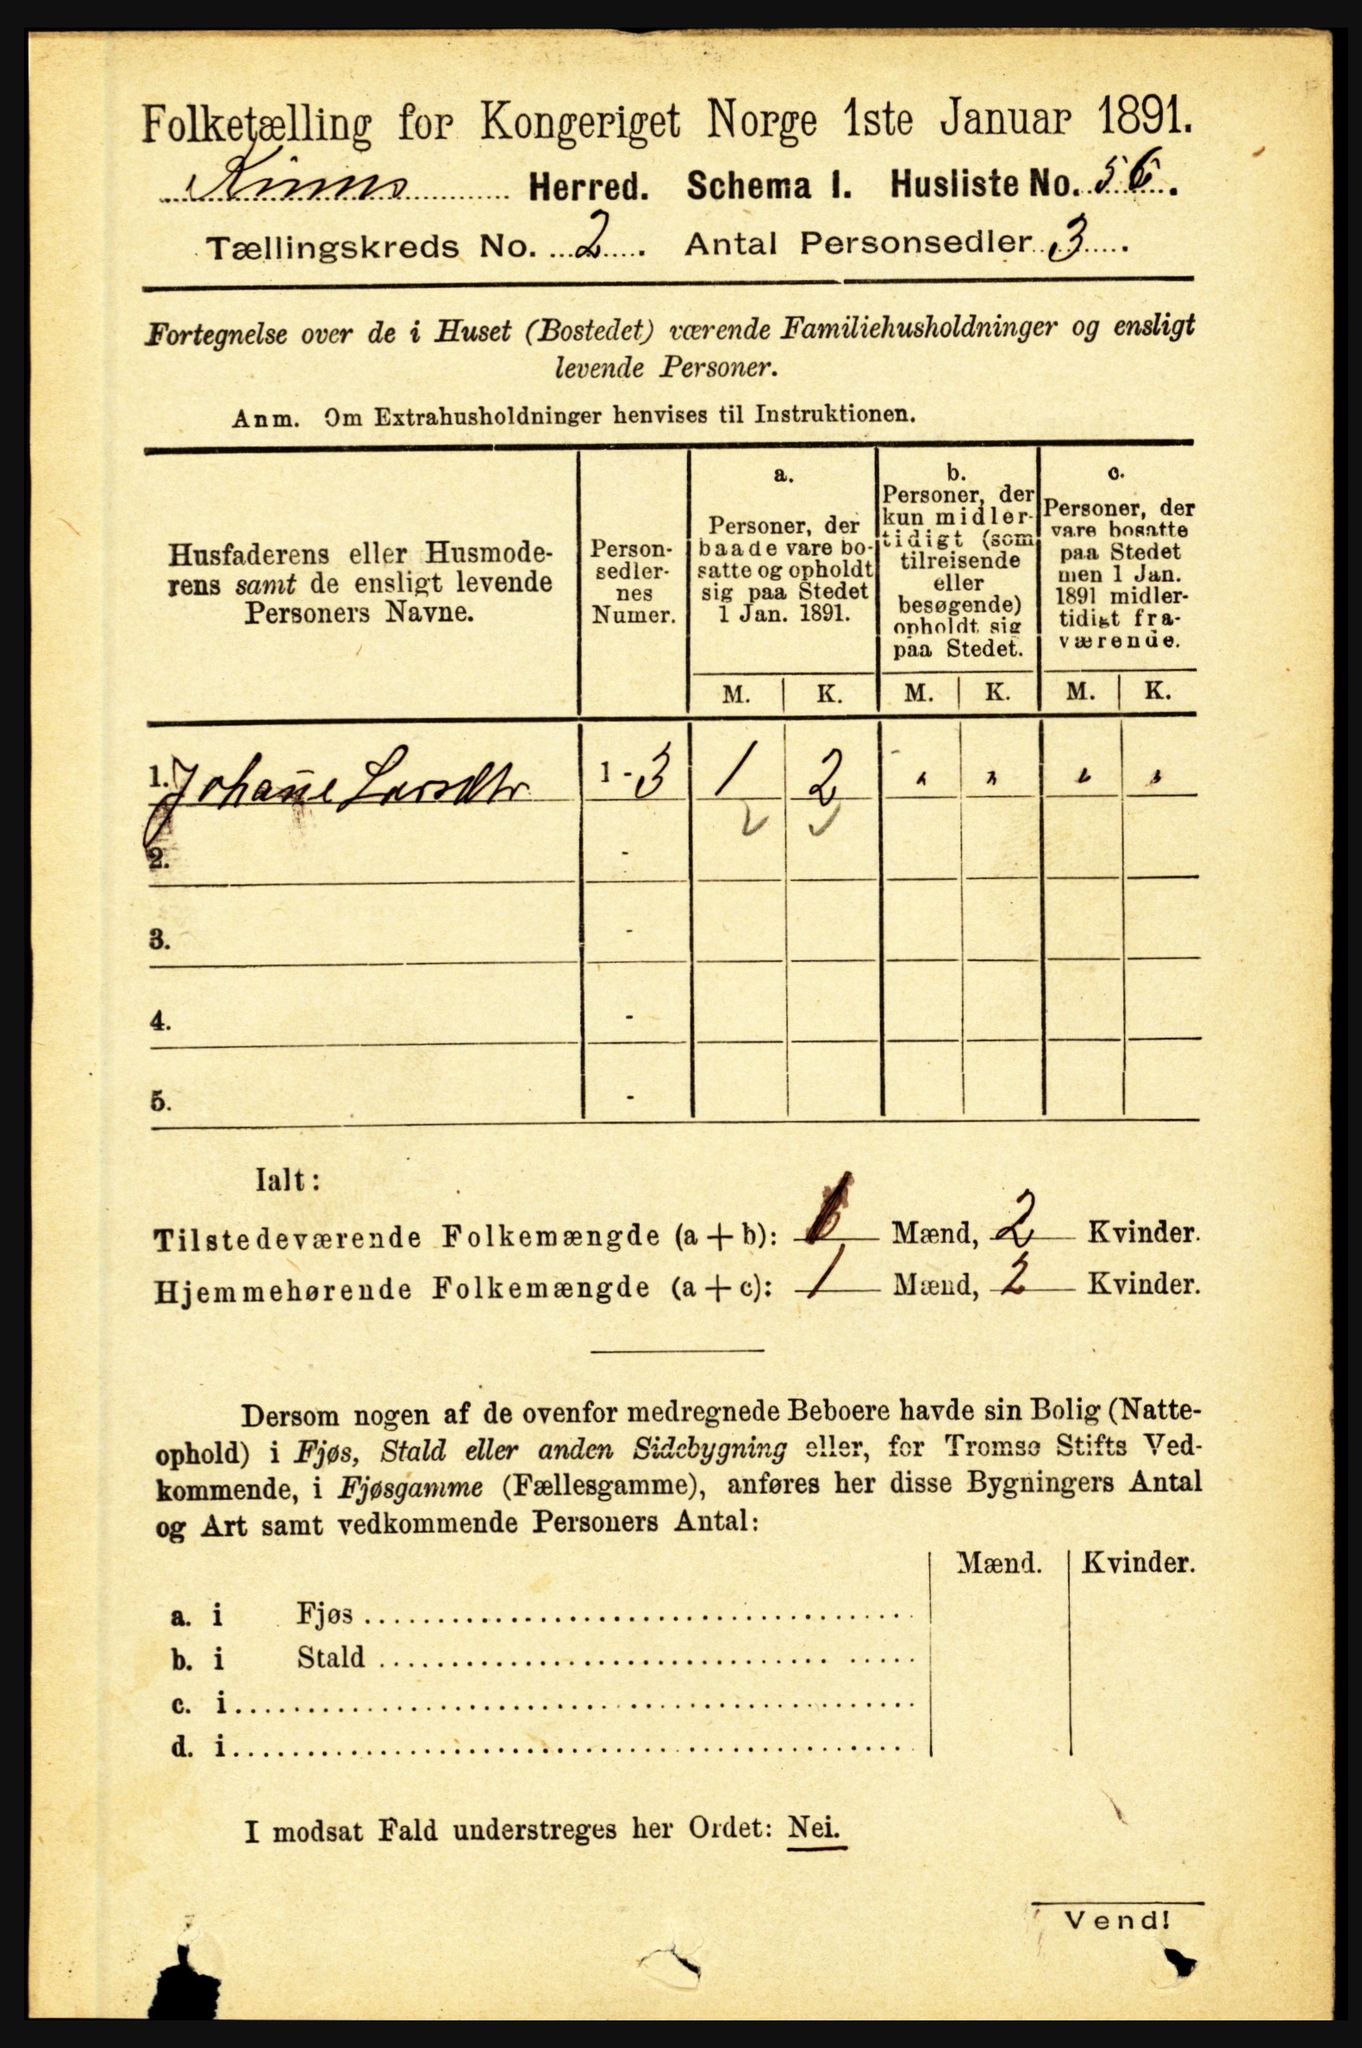 Folketælling for Kongeriget Norge 1ste Januar 1891.
Kinns Herred. Schema I. Husliste No. 56.
Tællingskreds No. 2. Antal Personsedler 3.
Fortegnelse over de i Huset (Bostedet) værende Familiehusholdninger og ensligt
levende Personer.
Anm. Om Extrahusholdninger henvises til Instruktionen.
Husfaderens eller Husmode-
rens samt de ensligt levende
Personers Navne.
Person-
sedler-
nes
Numer.
a.
Personer, der
baade vare bo-
satte og opholdt
sig paa Stedet
1 Jan. 1891.
b.
Personer, der
kun midler-
tidigt (som
tilreisende
eller
besøgende)
opholdt sig
paa Stedet.
c.
Personer, der
vare bosatte
paa Stedet
men 1 Jan.
1891 midler-
tidigt fra-
værende.
M. K. M. K. M. K.
1. Johane Larsdtr 1 - 3 1 2 " " " "
2. -
3. -
4. -
5. -
Ialt:
Tilstedeværende Folkemængde (a + b): 1 Mænd, 2 Kvinder.
Hjemmehørende Folkemængde (a + c): 1 Mænd, 2 Kvinder.
Dersom nogen af de ovenfor medregnede Beboere havde sin Bolig (Natte-
ophold) i Fjøs, Stald eller anden Sidebygning eller, for Tromsø Stifts Ved-
kommende, i Fjøsgamme (Fællesgamme), anføres her disse Bygningers Antal
og Art samt vedkommende Personers Antal:
Mænd. Kvinder.
a. i Fjøs
b. i Stald
c. i
d. i
I modsat Fald understreges her Ordet: Nei.
Vend!